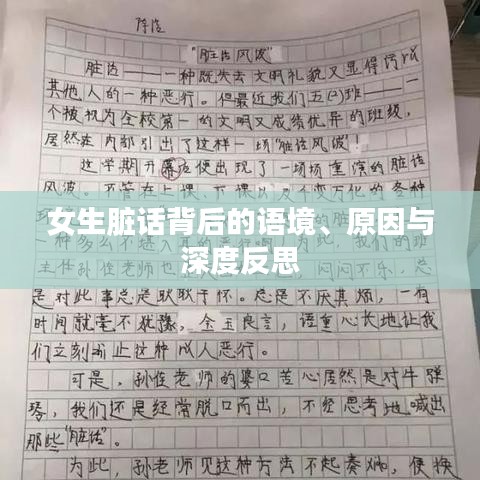 "脏话风波"
脏话——一种既失去文明礼貌又显得
其他人的一种恶行。但最近我们五(2)班——一
个被视为全校第一的文明又成绩优异的班级,
居然在内部引出了这样一场"脏话风波"。
这学期开便出现了一场场重演的脏话
风波。不管在上课、下课
女生脏话背后的语境、原因与
深度反思
是对此事总是耿耿于怀。总是不厌其烦,一有
时间就毫不犹豫,金玉良言,语重心长地让我
们立刻制止这种人恶行。
可是,孙佳老师的婆口苦心居然是对牛弹
琴,我们还是经常脱口而出,不经思考地喊出
那些"脏话"。
为此,孙老师见这种方法不起奏效,便换